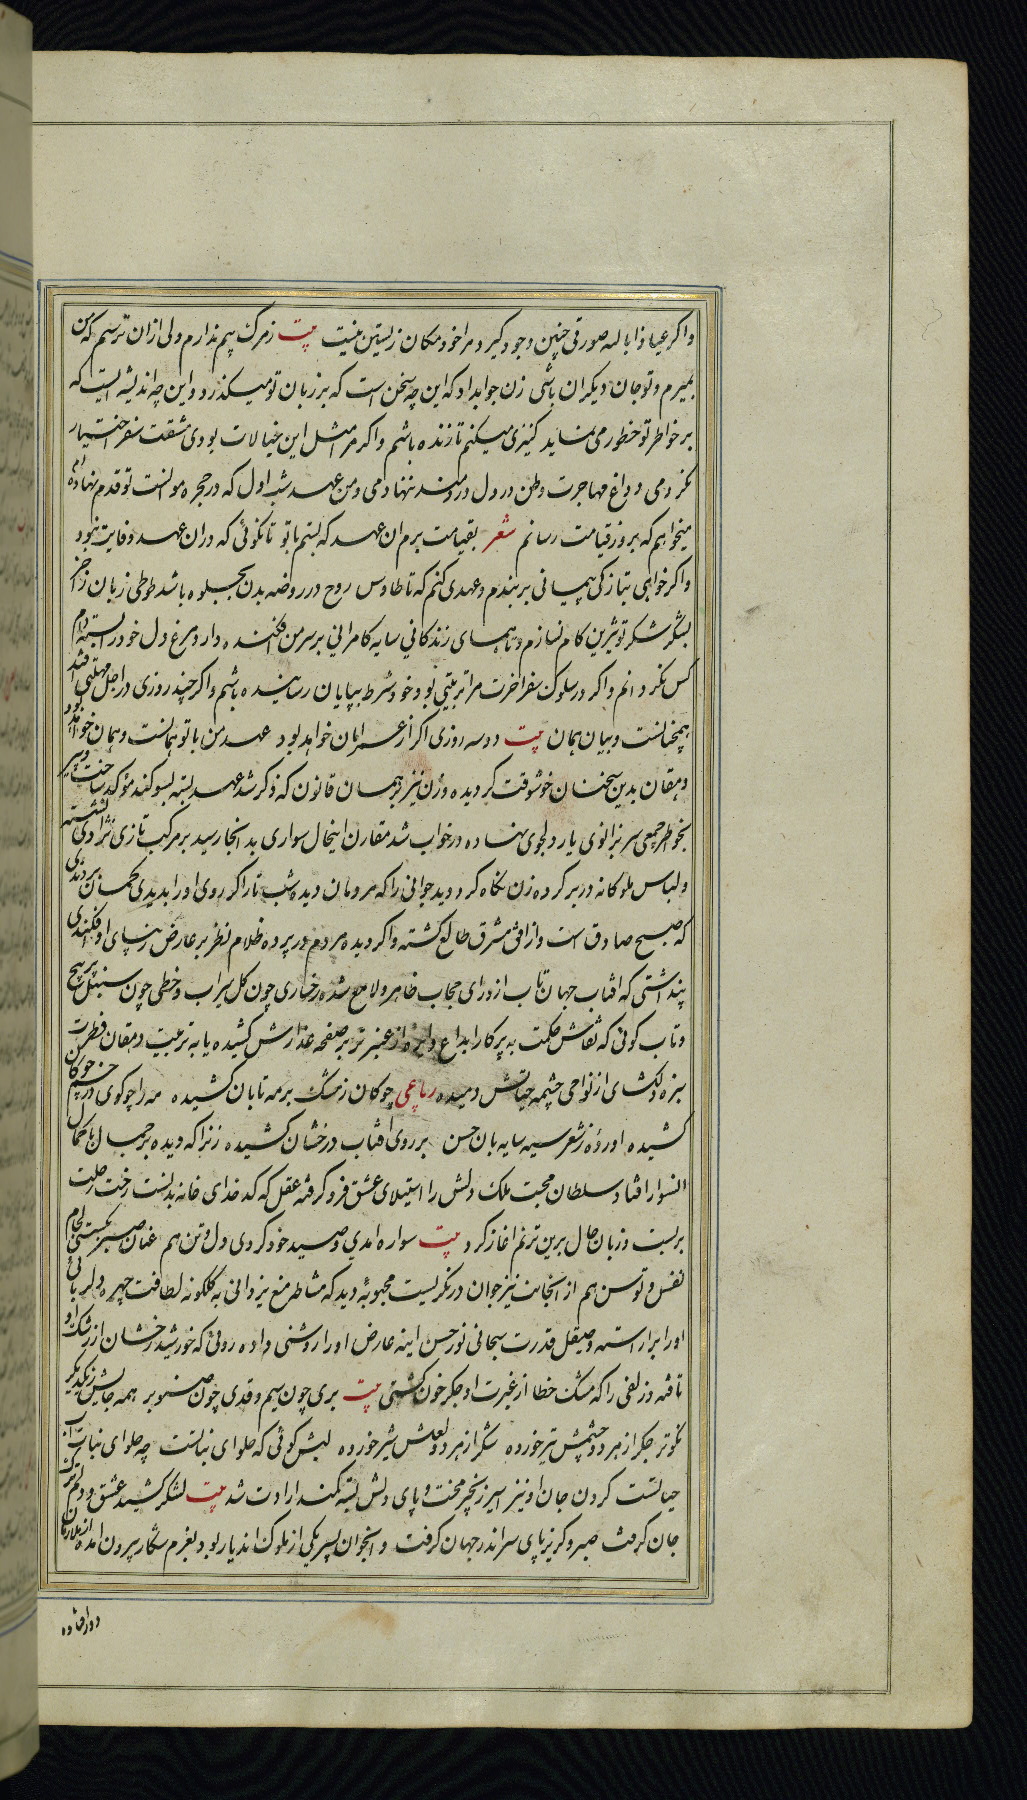 و اگر عیاذا بالله صورتی چنین وجود گیرد مرا خود امکان زیستن نیست بیت ز مرگ بیم ندارم ولی ازان ترسم که من
بمیرم و تو جان دیگران باشی زن جواب داد که این چه سخن است که بر زبان تو میگذرد و این چه اندیشه ایست که
بر خاطر تو خطور می نماید کنیزی میکنم تا زنده باشم و اگر مرا مثل این خیالات بودی مشقت سفر اختیار
نکردمی و داغ مهاجرت وطن در دل دردمند ننهادمی و من عهد شب اول که در حجره موانست تو قدم نهاده ام
میخواهم که بروز قیامت رسانم شعر بقیامت برم ان عهد که بستم با تو تا نگوئی که دران عهد وفایت نبود
و اگر خواهی بتازگی پیمانی بر بندم و عهدی کنم که تا طاوس روح در روضه بدن بجلوه باشد طوطی زبان را جز
بشکر شکر تو شیرین کام نسازم و تا همای زندگانی سایه کامرانی بر سر من افکنده دارد مرغ دل خود را بسته دام
کس نگردانم و اگر در سلوک سفر اخرت مرا تربیتی بود خود شرط بپایان رسانیده باشم و اگر چند روزی در اجل مهلتی افتد
همچنانست و بیان همان بیت دو سه روزی اگر از عمر امان خواهد بود عهد من با تو همانست و همان خواهد بود
دهقان بدین سخنان خوشوقت گردیده و زن نیز بر همان قانون که ذکر شد عهد بسته بسوگند مؤکد ساخت و پیر
بخواطر جمعی سر بزانوی یار دلجوی نهاده در خواب شد مقارن اینحال سواری بدانجا رسید بر مرکب تازی نژادی نشسته
و لباس ملوکانه در بر کرده زن نگاه کرد و دید جوانی را که مردمان دیده شب تار اگر روی او را بدیدی گمان بردندی
که صبح صادق است و از افق مشرق طالع گشته و اگر دیده مردم در پرده ظلام نظر بر عارض زیبای او افکندی
پنداشتی که افتاب جهان تاب از ورای حجاب ظاهر و لامع شده رخساری چون گل سیراب و خطی چون سنبل پر پیچ
و تاب گوئی که نقاش حکمت به پرگار ابداع دایره از عنبر تر بر صفحه عذارش کشیده یا به تربیت دهقان فطرت
سبزه دلکشای از نواحی چشمه حیاتش دمیده رباعی چوگان ز مشک بر مه تابان کشیده مه را چو گوی در خم چوگان
کشیده اورده ز شعر سیه سایه بان حسن بر روی افتاب درخشان کشیده زن را که دیده بر جمال با کمال
ان سوار افتاد سلطان محبت ملک دلش را استیلای عشق فرو گرفته عقل که کدخدای خانه بدنست رخت رحلت
بر بست و زبان حال برین ترنم اغاز کرد بیت سواره امدی و صید خود کردی دل و تن هم عنان صبر بگسستی لجام
نفس و توسن هم از انجانب نیز جوان در نگریست محبوبۀ دید که مشاطه صنع یزدانی به گلگونه لطافت چهره دلربائی
او را براراسته و صیقل قدرت سبحانی نور حسن اینه عارض او را روشنی داده روئی که خورشید رخشان از رشک او
تافته و زلفی را که مشک خطا از غیرت او جگر خون گشتی بیت بری چون سیم و قدی چون صنوبر همه جایش ز یکدیگر
نکوتر جگر از هر دو چشمش تیر خورده شکر از هر دو لعلش شیر خورده لبش گوئی که حلوای نباتست چه حلوای نبات
حیاتست کردن جان او نیز اسیر زنجیر محنت و پای دلش بسته کمند ارادت شد بیت لشکر کشید عشق و دلم ترک
جان گرفت صبر گریز پای سر اندر جهان گرفت و انجوان پسر یکی از ملوک اندیار بود بعزم شکار بیرون امده از ملازمان
دور افتاده